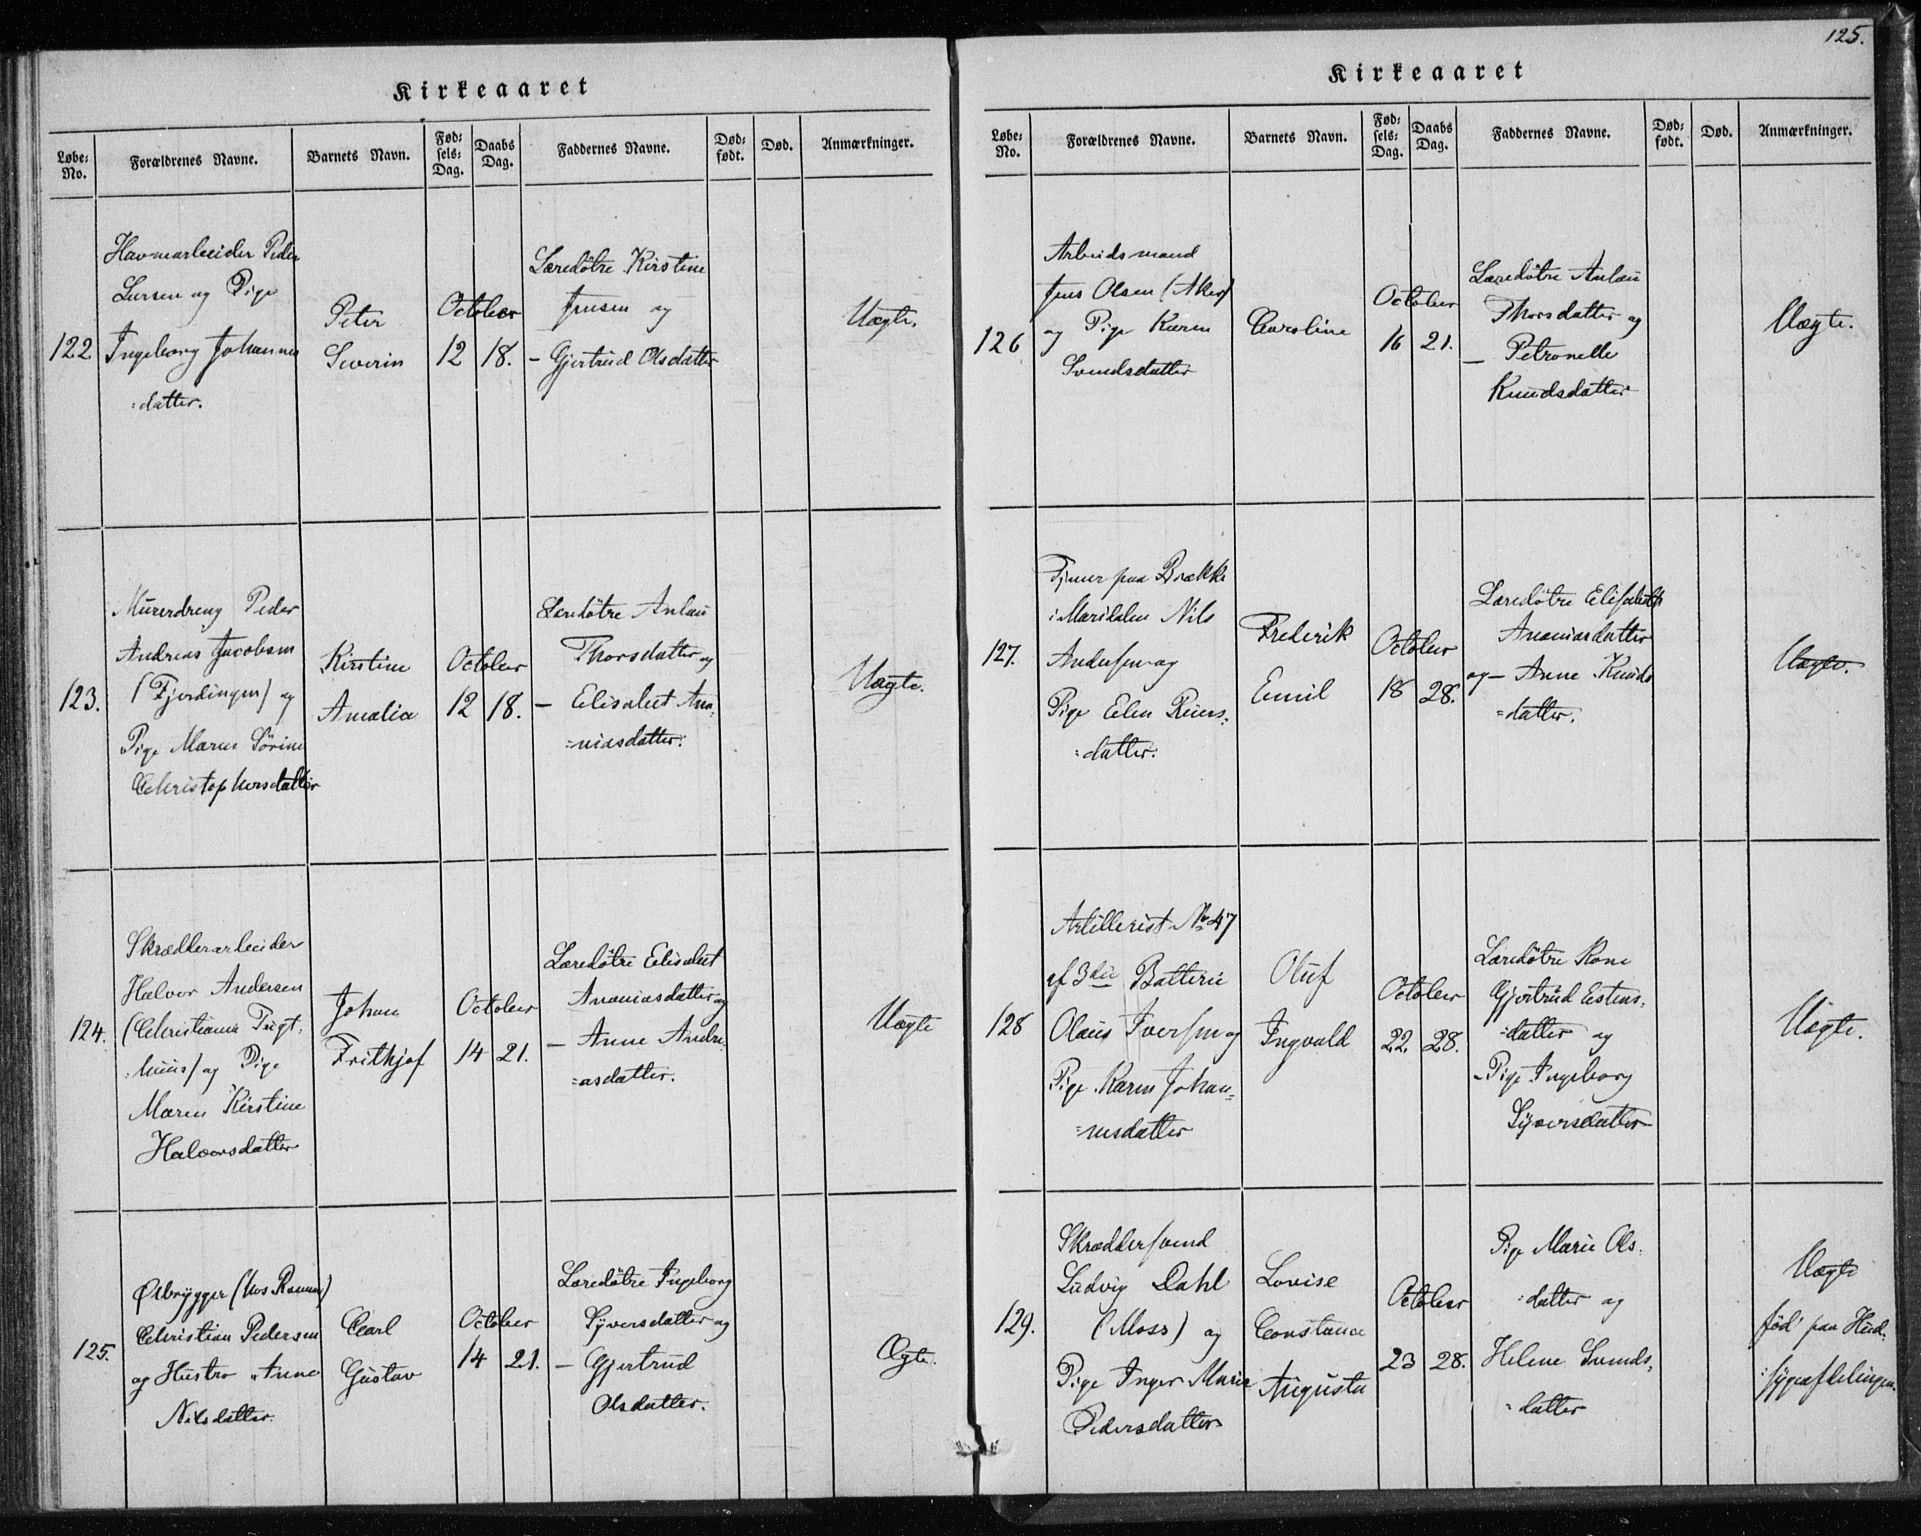 Kirkeaaret
Løbe-No.
Forældrenes Navne.
Barnets Navn.
Fødselsdag.
Daabs Dag.
Faddernes Navne.
Dødfødt.
Død.
Anmærkninger.
122.
Havnearbeider Peder
Larsen og Pige
Ingeborg Johannes
=datter.
Peter
Severin
October
12 18.
Læredøtre Kirstine
Jensen og
– Gjertrud Olsdatter
Uægte.
123.
Murerdreng Peder
Andreas Jacobsen
(Fjerdingen) og
Pige Maren Sørine
Christophersdatter
Kirstine
Amalia
October
12 18.
Læredøtre Anlaii
Thorsdatter og
– Elisabet Ana-
=niasdatter.
Uægte.
124.
Skrædderarbeider
Halvor Andersen
(Christiania Tugt-
=huus) og Pige
Maren Kirstine
Halvorsdatter
Johan
Frithjof
October
14 21.
Læredøtre Elisabet
Ananiasdatter og
– Anne Andre-
=asdatter.
Uægte
125.
Ølbrygger (hos )
Christian Pedersen
og Hustro Anne
Nilsdatter.
Carl
Gustav
October
14 21.
Læredøtre Ingeborg
Syversdatter og
– Gjertrud
Olsdatter.
Ægte.
125.
Kirkeaaret
Løbe-No.
Forældrenes Navne.
Barnets Navn.
Fødselsdag.
Daabs Dag.
Faddernes Navne.
Dødfødt.
Død.
Anmærkninger.
126
Arbeidsmand
Jens Olsen (Aker)
og Pige Karen
Svendsdatter
Caroline
October
16 21.
Læredøtre Anlaii
Thorsdatter og
– Petronelle
Knudsdatter
Uægte.
127.
Tjener paa Brække
i Maridalen Nils
Andersen og
Pige Elen
=datter.
Frederik
Emil
October
18 28.
Læredøtre Elisabeth
Ananiasdatter
og – Anne Knuds
=datter.
Uægte.
128
Artillerist No 47
af 3die Batterie
Olaus Iversen og
Pige Karen Johan-
=nesdatter
Oluf
Ingvald
October
22. 28.
Læredøtre Kone
Gjertrud Estens-
=datter og
– Pige Ingeborg
Syversdatter
Uægte.
129.
Skræddersvend
Ludvig Dahl
(Moss) og
Pige Inger Marie
Pedersdatter
Lovise
Constance
Augusta
October
23 28.
Pige Marie Ols-
=datter og
Helene Svends-
=datter
Uægte
født paa Hud-
=sygeafdelingen.